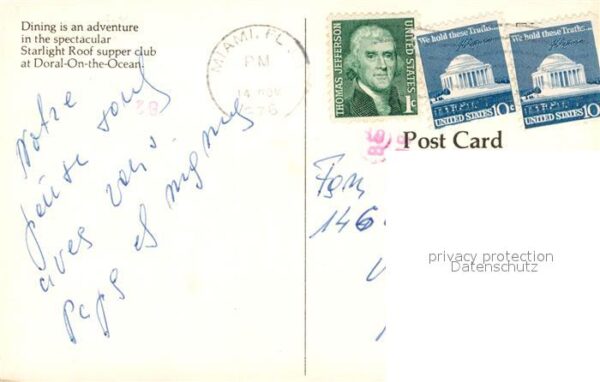 Dining is an adventure
in the spectacular
Starlight Roof supper club
at Doral-On-the-Ocean.
MIAMI, FL.
PM
14
1976
THOMAS JEFFERSON
UNITED STATES
1c
We hold these Truths...
UNITED STATES 10c
We hold these Truths...
UNITED STATES 10c
Post Card
Notre
avec vous.
Papy et
146
privacy protection
Datenschutz